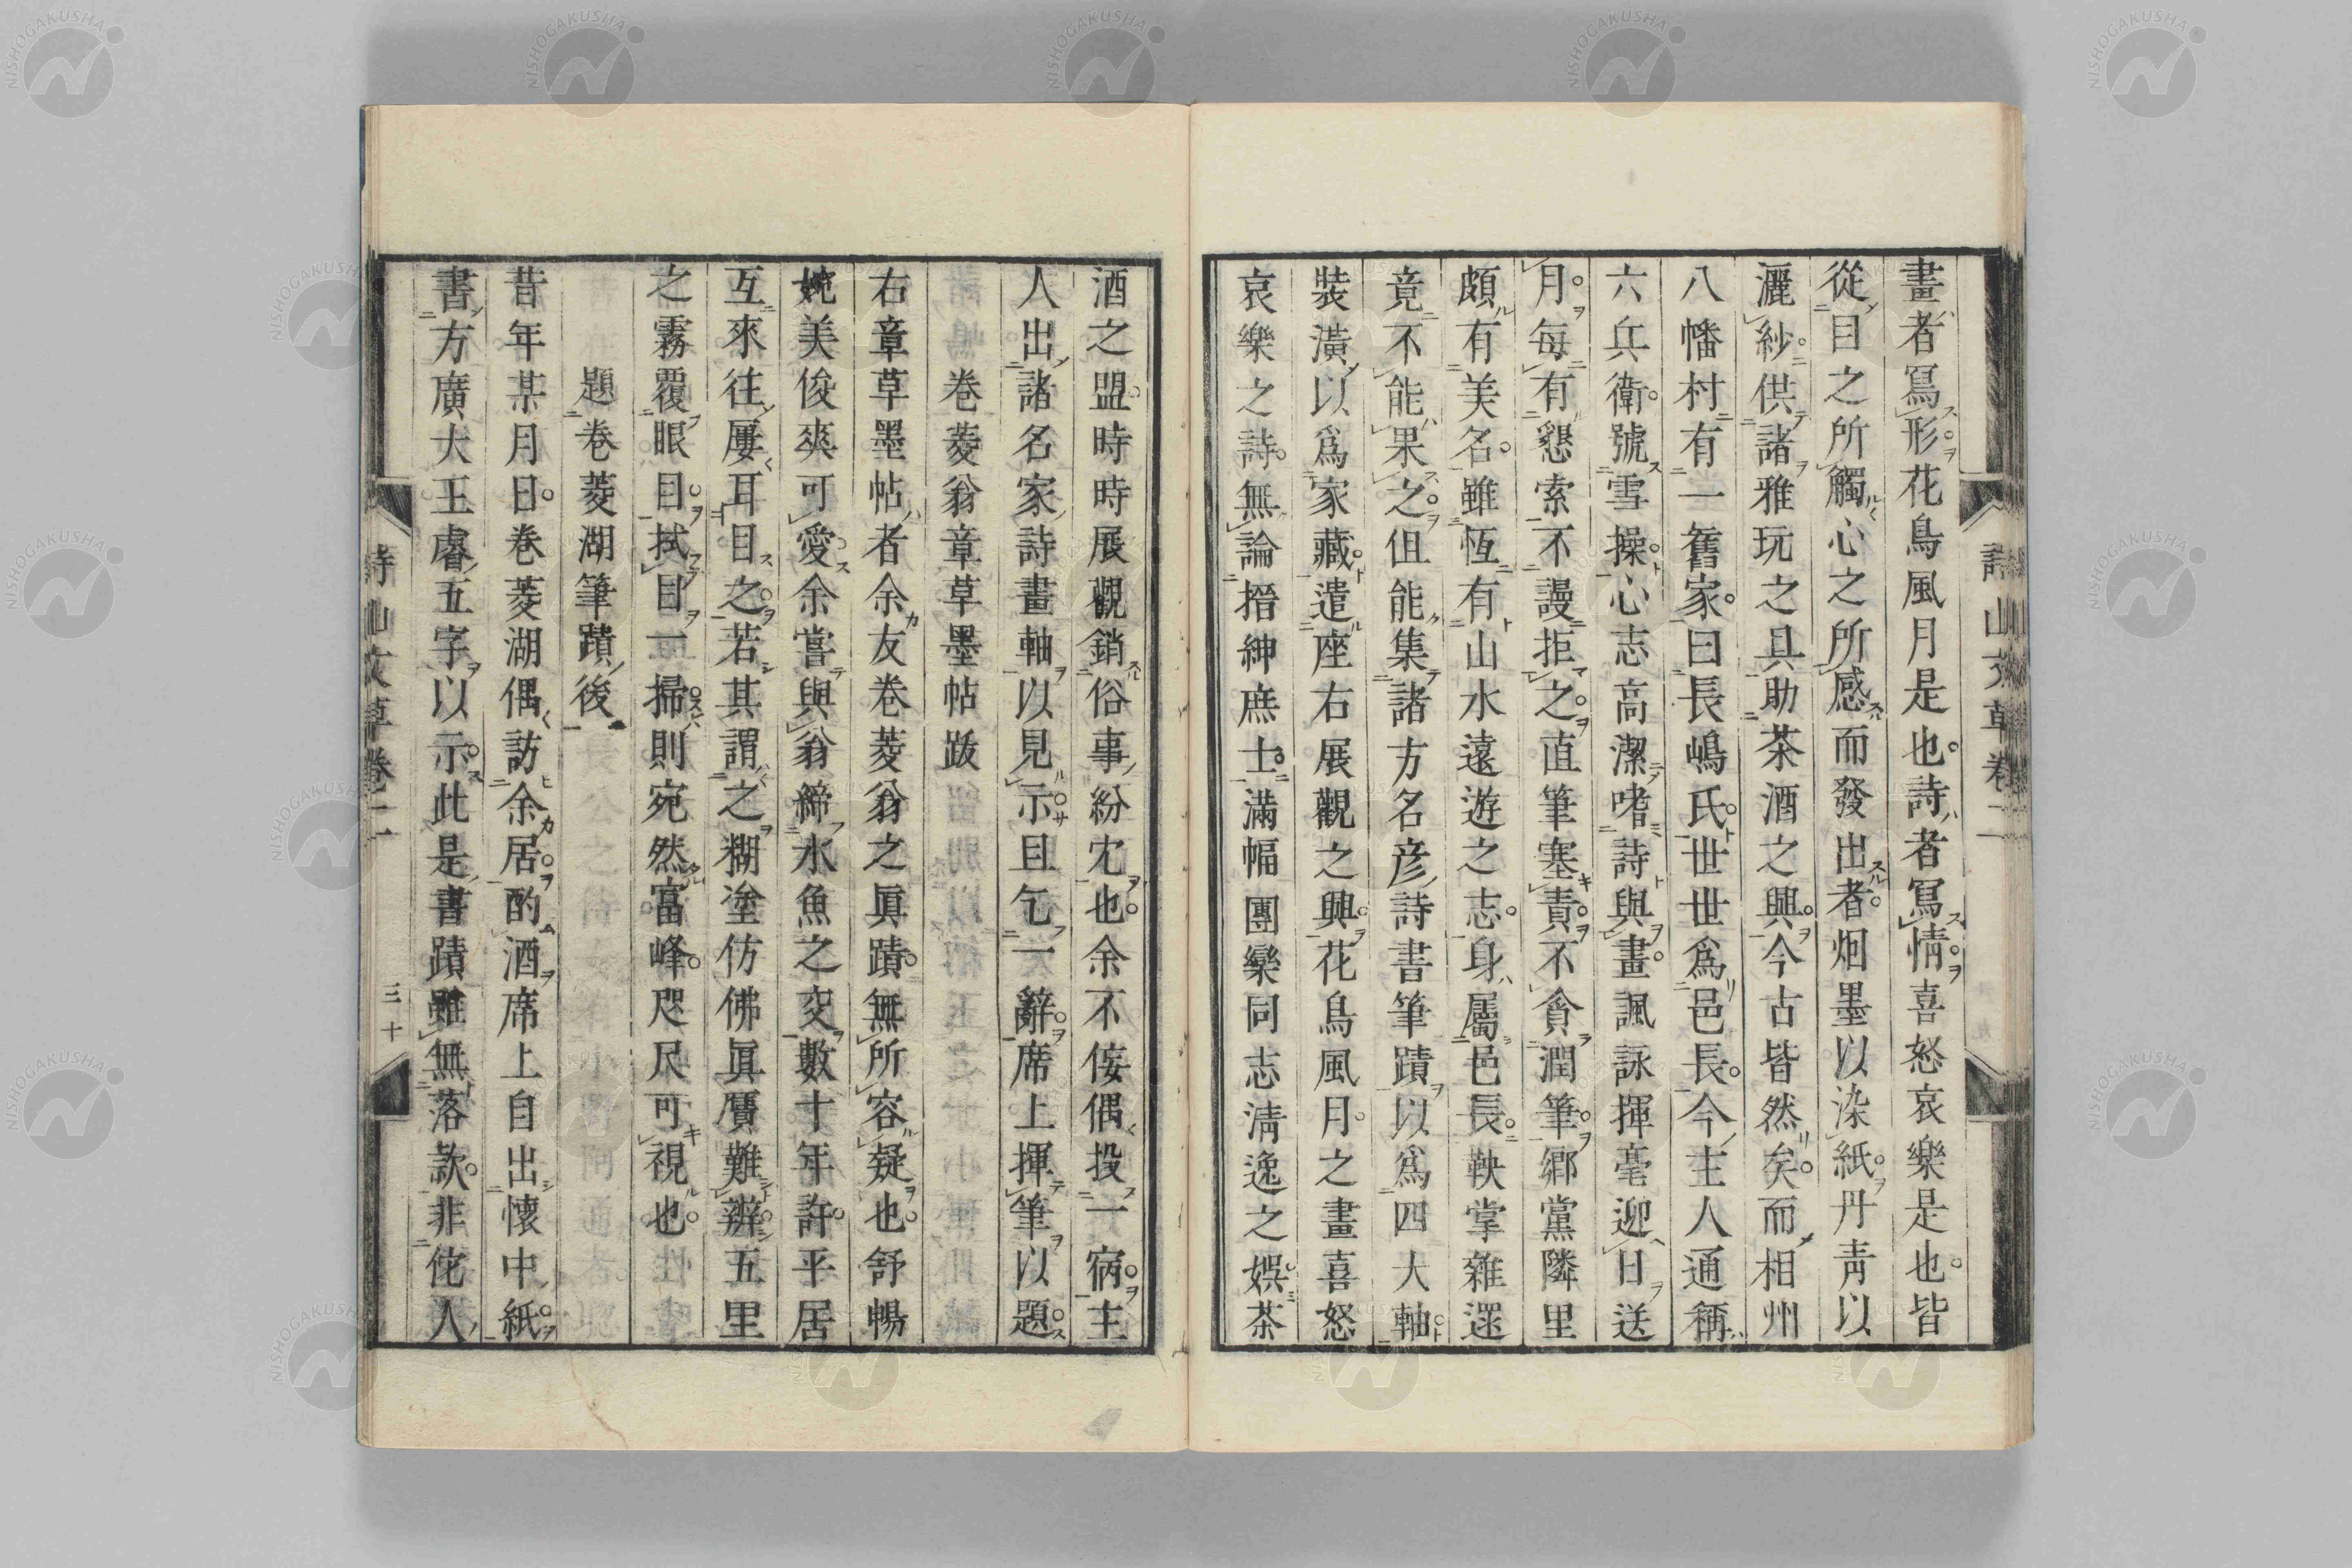 畫者寫形花鳥風月是也詩者寫情喜怒哀樂是也皆
從目之所觸心之所感而發出者烟墨以染紙丹靑以
灑紗供諸雅玩之具助茶酒之興今古皆然矣而相州
八幡村有一舊家曰長嶋氏世世爲邑長今主人通稱
六兵衛號雪操心志高潔嗜詩與畫諷詠揮毫迎日送
月每有懇索不謾拒之直筆塞責不貪潤筆鄉黨隣里
頗有美名雖恆有山水遠遊之志身屬邑長鞅掌雜遝
竟不能果之但能集諸方名彦詩書筆蹟以爲四大軸
裝潢以爲家藏遣座右展觀之興花鳥風月之畫喜怒
哀樂之詩無論搢紳庶士滿幅團欒同志淸逸之娯茶
詩山文草卷二
酒之盟時時展觀銷俗事紛尤也余不佞偶投一病主
人出諸名家詩畫軸以見示且乞一辭席上揮筆以題
卷菱翁章草墨帖跋
右章草墨帖者余友卷菱翁之眞蹟無所容疑也舒暢
婉美俊爽可愛余嘗與翁締水魚之交數十年許平居
互來往屢耳目之若其謂之糊塗仿佛眞贋難辨五里
之霧覆眼目拭目一掃則宛然富峰咫尺可視也
題卷菱湖筆蹟後
昔年某月日卷菱湖偶訪余居酌酒席上自出懷中紙
書方廣大王睿五字以示此是書蹟雖無落款非佗人
詩山文草卷二
三十
NISHOGAKUSHA